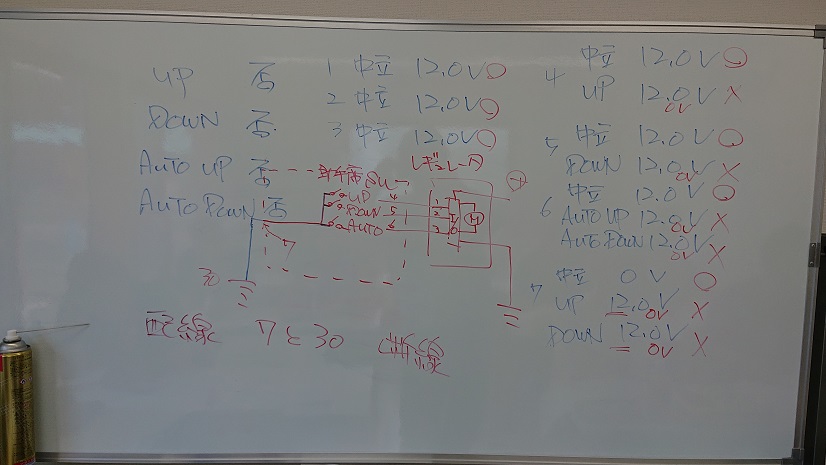 UP 否
DOWN 否
AUTO UP 否
AUTO DOWN 否
1 中立 12.0V ○
2 中立 12.0V ○
3 中立 12.0V ○
4 中立 12.0V ○
UP 12.0V 0V ×
5 中立 12.0V ○
DOWN 12.0V 0V ×
6 中立 12.0V ○
AUTO UP 12.0V 0V ×
AUTO DOWN 12.0V 0V ×
7 中立 0V ○
UP 12.0V 0V ×
DOWN 12.0V 0V ×
SW
レギュレータ
UP 4 1
DOWN 5 2
AUTO 6 3
M
+
7
30
配線 7と30 断線